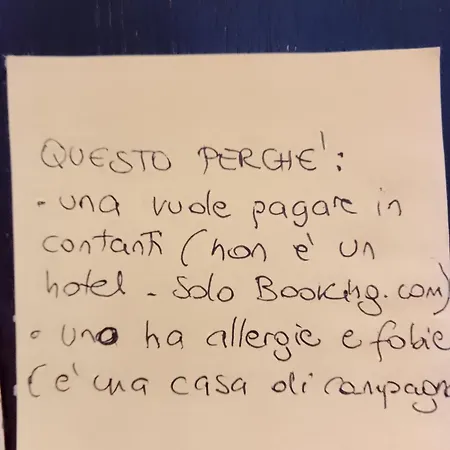 QUESTO PERCHE':
- una vuole pagare in
contanti (non è un
hotel - Solo Booking.com)
- uno ha allergie e fobie
(è una casa di campagn